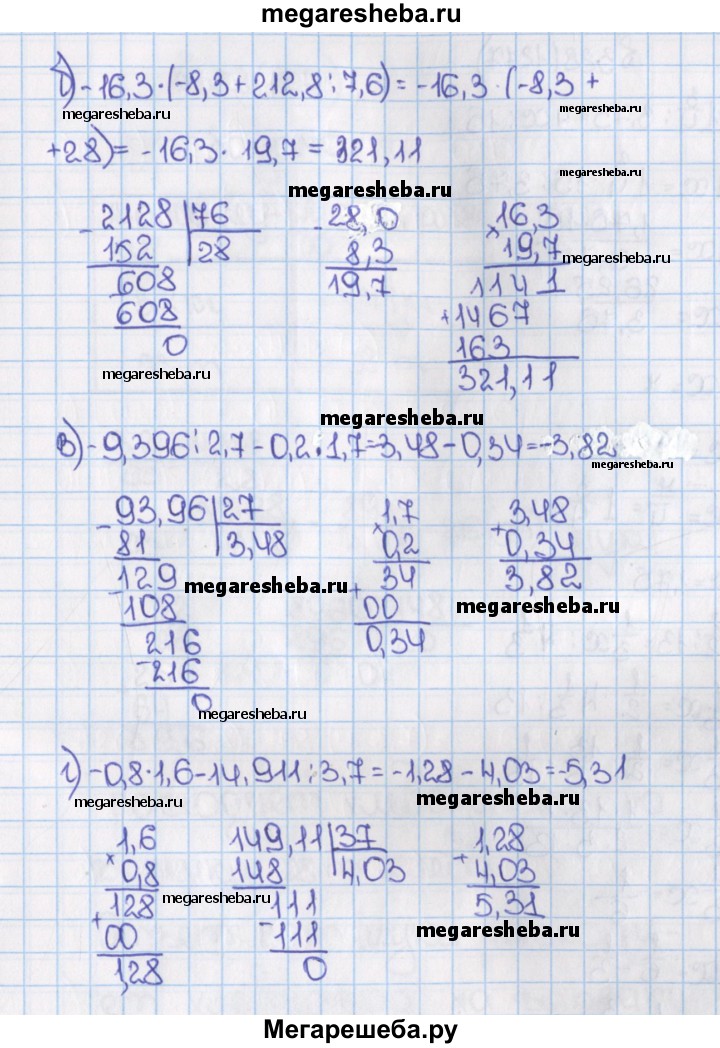 megaresheba.ru
б) -16,3·(-8,3+212,8:7,6)= -16,3·(-8,3+
megaresheba.ru
megaresheba.ru
+28)= -16,3·19,7=321,11
megaresheba.ru
megaresheba.ru
-2128|76
152 28
608
608
0
-28,0
8,3
19,7
×16,3
19,7
1141
+1467
163
321,11
megaresheba.ru
megaresheba.ru
megaresheba.ru
в) -9,396:2,7-0,2·1,7=-3,48-0,34=-3,82
megaresheba.ru
-93,96|27
81 3,48
-129
108
216
-216
0
×1,7
0,2
34
+00
0,34
3,48
+0,34
3,82
megaresheba.ru
megaresheba.ru
megaresheba.ru
г) -0,8·1,6-14,911:3,7=-1,28-4,03=-5,31
megaresheba.ru
megaresheba.ru
×1,6
0,8
128
+00
1,28
149,11|37
148 4,03
111
-111
0
1,28
+4,03
5,31
megaresheba.ru
megaresheba.ru
megaresheba.ru
Мегарешеба.ру